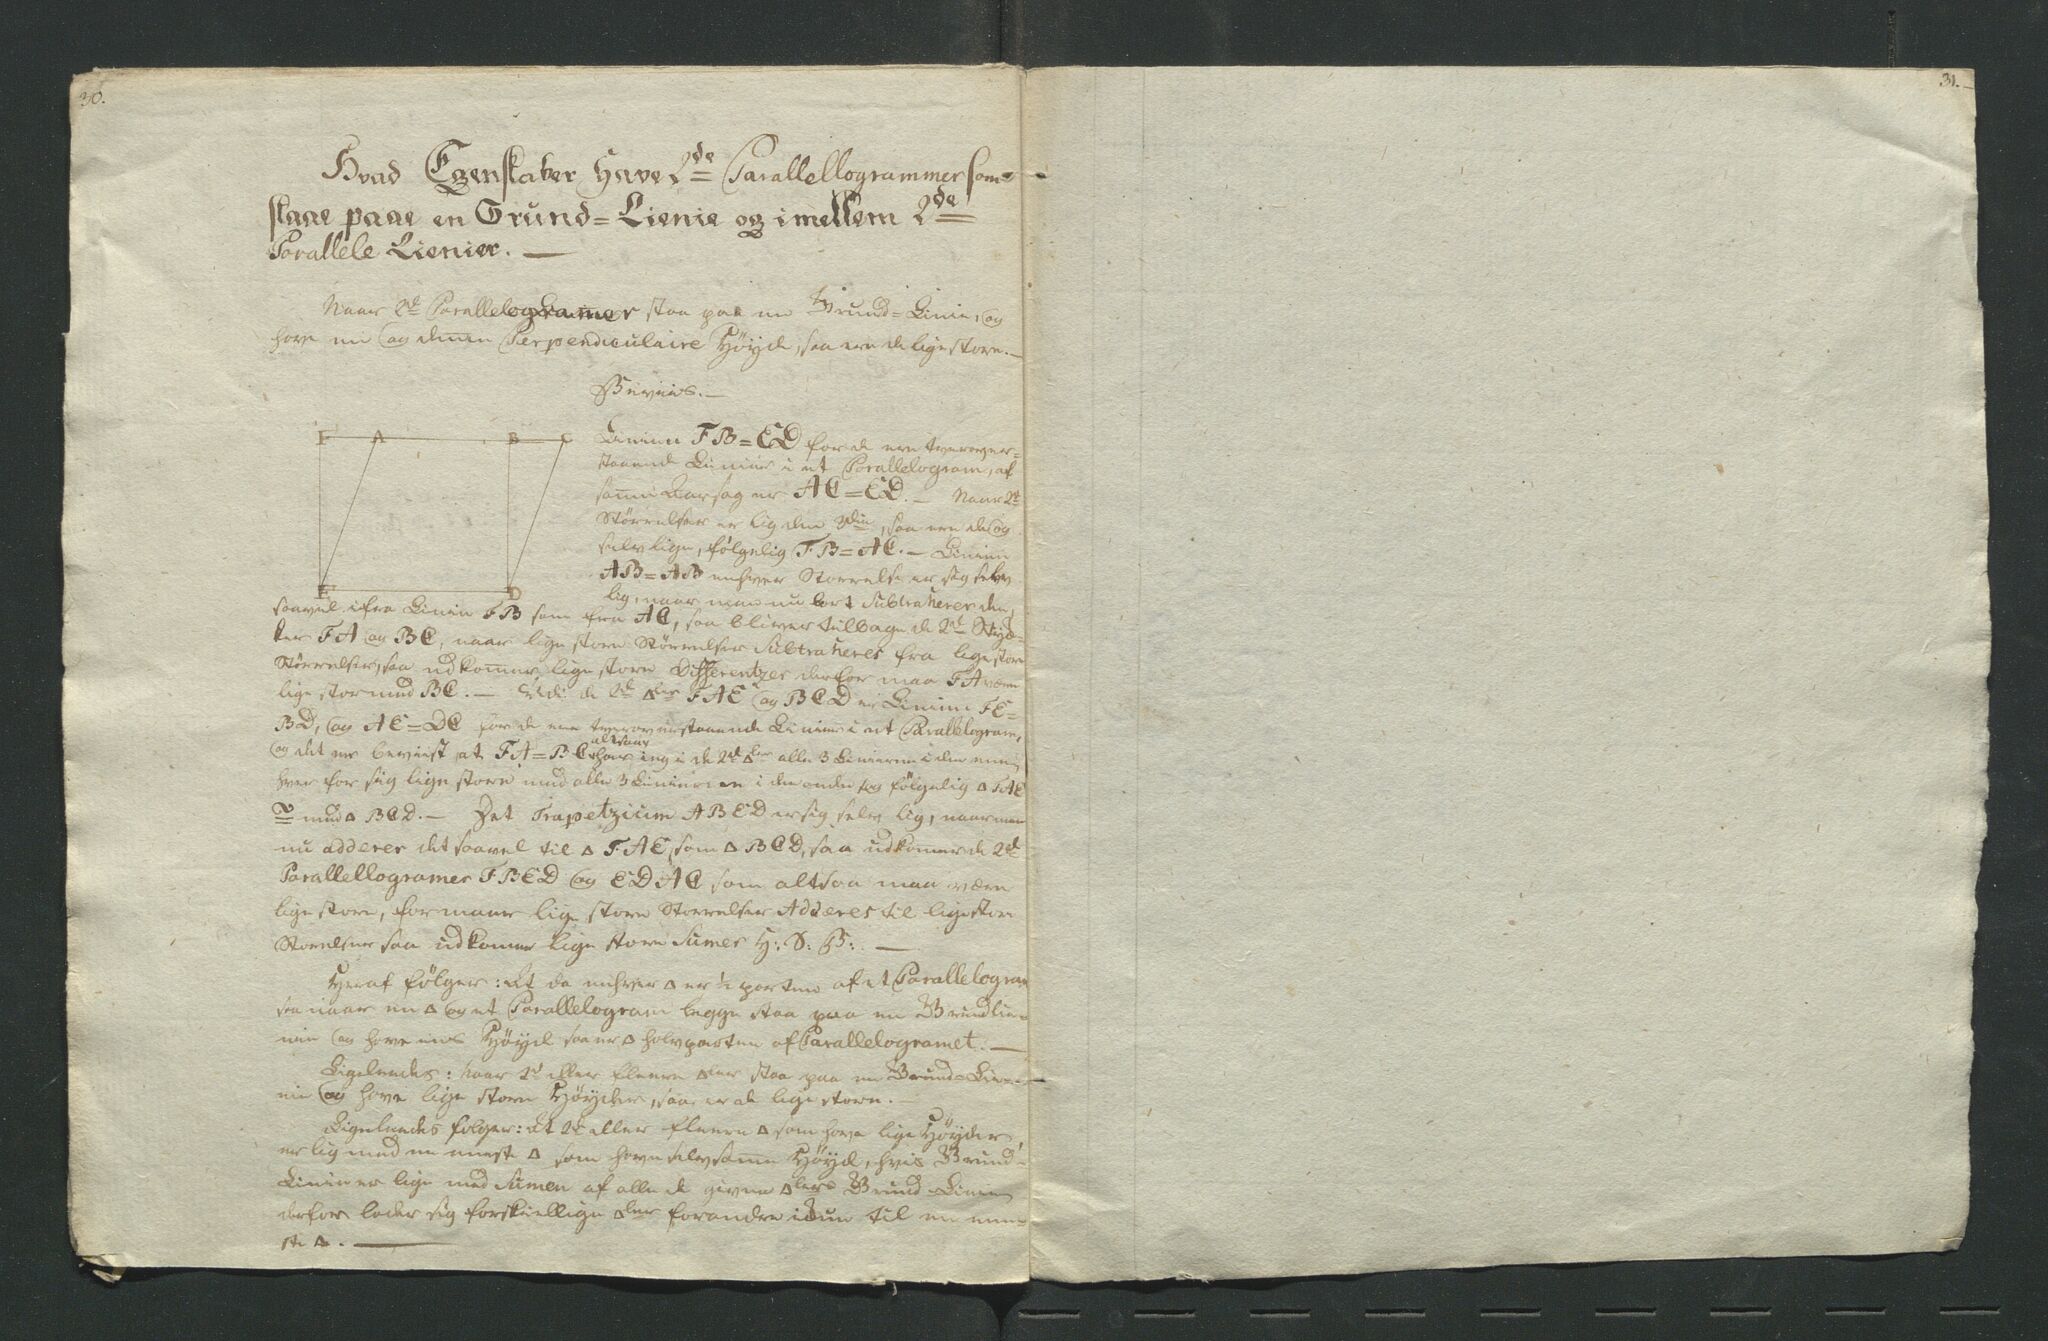 30.
Hvad Egenskaber Have 2de Parallellogrammer som
staae paae en Grund=Lienie og imellem 2de
Parallele Lienier. —
Naar 2de Parallelogramer staa paa en Grund=Linie, og
have en og denne Perpendiculaire Høyde, saa ere de lige store. —
Beviis. —
F A B C
E D
Linien FB=ED for de ere tverover=
staaende Linier i et Parallelogram, af
samme Aarsag er AC=ED. — Naar 2de
Størrelser er lig den 3die, saa ere de og
selv lige, følgelig FB=AC. — Linien
AB=AB enhver Størrelse er sig selv
lig, naar man nu bort Subtraherer den,
saavel ifra Linien FB som fra AC, saa bliver tilbage de 2de Styk=
ker FA og BC, naar lige store Størrelser Subtraheres fra lige store
Størrelser, saa udkommer lige store Differentzer derfor maa FA være
lige stor med BC. — Udi de 2de ▵ler FAE og BCD er Linien FE=
BD, og AE=DC for de ere tveroverstaaende Linier i et Parallelogram,
og det er beviist at FA=BC altsaa har ieg i de 2de ▵ler alle 3 Linierne i den eene
hver for sig lige store med alle 3 Linierne i den anden og følgelig ▵ FAE
med ▵ BCD. — Det Trapetzium ABED er sig selv lig, naar man
nu adderer det saavel til ▵ FAE, som ▵ BCD, saa udkomer de 2de
Parallellogramer FBED og EDAC som altsaa maa være
lige store, for naar lige store Størrelser Adderes til lige store
Størrelser saa udkomer lige store Sumer H: S: B:. —
Heraf følger: At da enhver ▵ er ½ parten af et Parallelogram
saa naar en ▵ og et Parallelogram begge staa paa en Grundlie=
nie og have eens Høyde saa er ▵ halvparten af Parallelogramet. —
Ligeledes: naar 2de eller fleere ▵ler staa paa en Grund=Lie=
nie og have lige store Høyder, saa er de lige store. —
Ligeleedes følger: At 2de eller fleere ▵ som have lige Høyder,
er lig med en eneste ▵ som have selvsamme Høyde, hvis Grund=
Linie er lige med Sumen af alle de givne ▵lers Grund=Linier
derfor lader sig forskiellige ▵ler forandre til en ene=
ste ▵. —
31. —